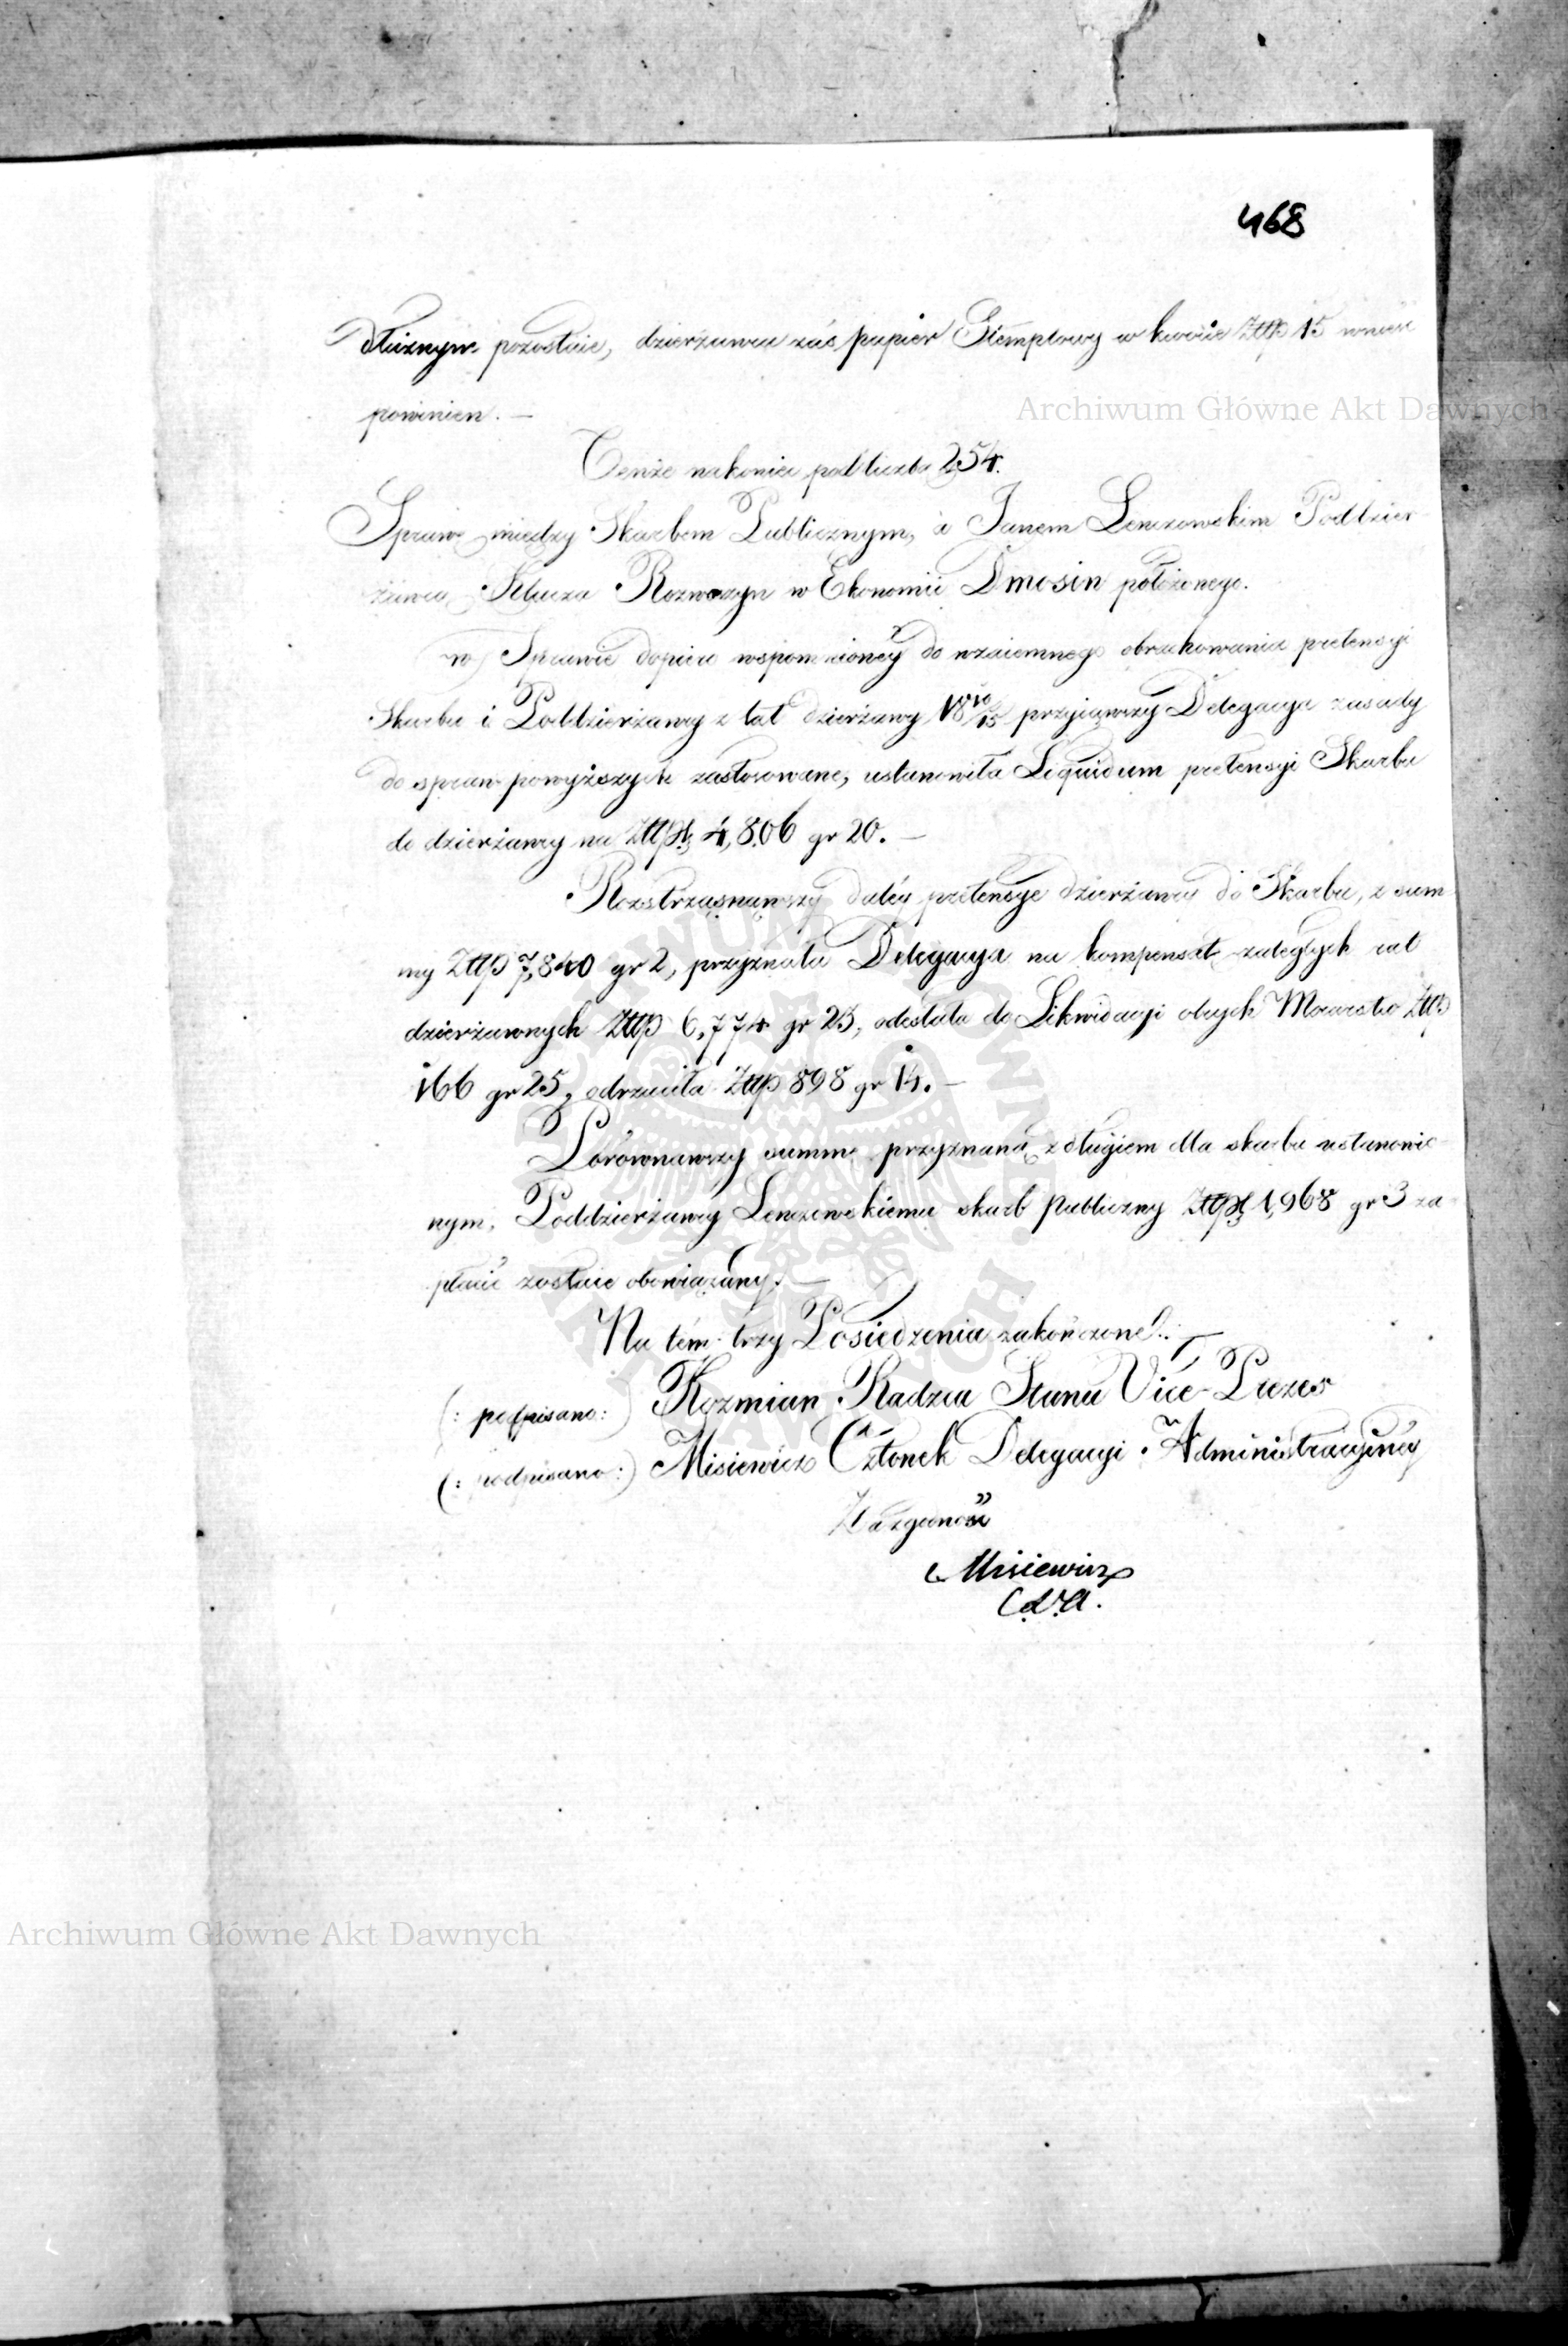 468
dłużnym pozostaie, dzierżawca zaś papier Stemplowy w kwocie Złtp 15 wnieść
powinien. —
Tenże nakoniec pod liczbą 254.
Sprawę między Skarbem Publicznym, a Janem Lenczowskim Poddzier-
żawcą Klucza Rozworzyn w Ekonomii Dmosin położonego.
W Sprawie dopiero wspomnioney do wzaiemnego obrachowania pretensyi
Skarbu i Poddzierżawcy z lat dzierżawy 18 10/15 przyiąwszy Delegacya zasady
do spraw powyższych zastosowane, ustanowiła Liquidum pretensyi Skarbu
do dzierżawcy na Złtp. 4,806 gr 20. —
Rozstrząsnąwszy daléy pretensye dzierżawcy do Skarbu, z sum-
my Złtp 7,840 gr 2, przyznała Delegacya na kompensatę zaległych rat
dzierżawnych Złtp 6,774 gr 23, odesłała do Likwidacyi obcych Mocarstw Złtp
166 gr 25, odrzuciła Złtp 898 gr 14. —
Porównawszy summę przyznaną z długiem dla skarbu ustanowio-
nym, Poddzierżawcy Lenczewskiemu skarb Publiczny Złtp. 1,968 gr 3 za-
płacić zostaie obowiązany. —
Na tém trzy Posiedzenia zakończone. —
(: podpisano:) Kozmian Radzca Stanu Vice-Prezes
(: podpisano:) Misiewicz Członek Delegacyi Administracyiney
Za zgodność
Misiewicz
C.D.A.
Archiwum Główne Akt Dawnych
Archiwum Główne Akt Dawnych